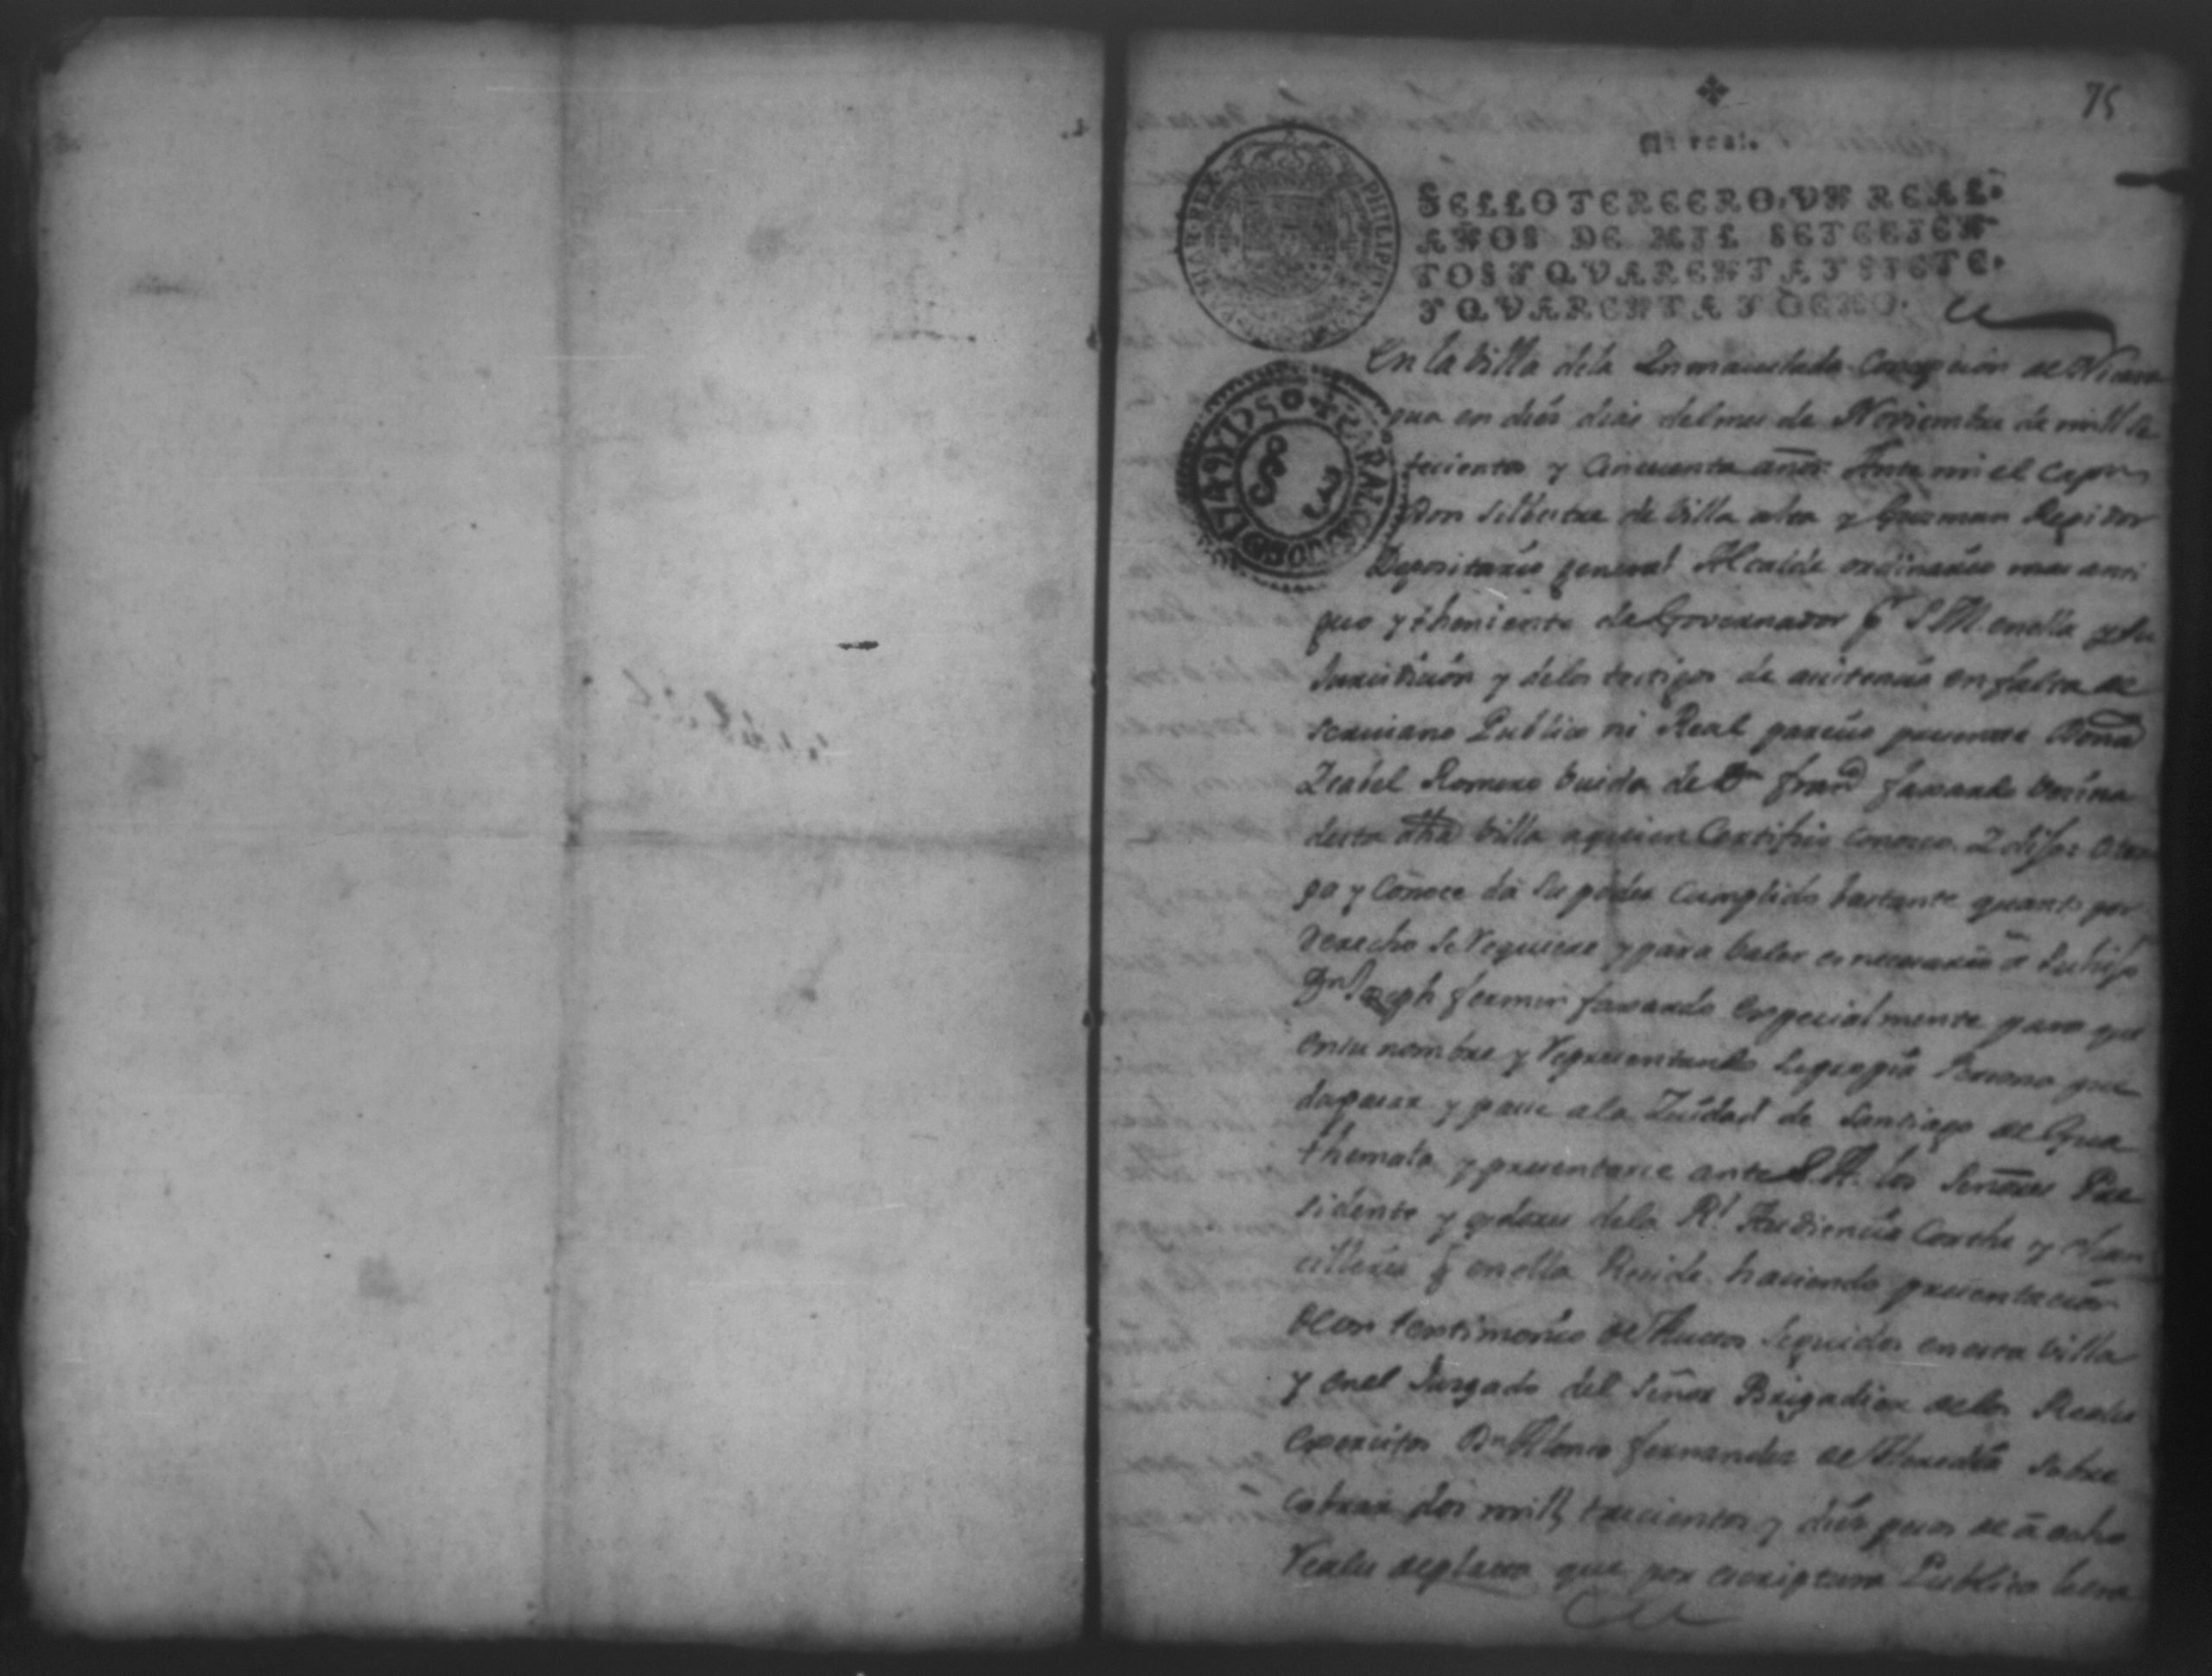 75
Un real.
SELLO TERCERO, VN REAL,
AÑOS DE MIL SETECIEN
TOS Y QVARENTA Y SIETE,
Y QVARENTA Y OCHO.
En la Villa dela Inmaculada Concepcion de Nicara
gua en diés dias del mes de Noviembre de mill se
tecientos y Cinquenta años Ante mi el Capn
Don Silbestre de Villa alta y Guzman Regidor
Depositario general Alcalde ordinario mas anti
guo y theniente de Governador pr S.M. en ella y su
Jurisdicion y delos testigos de asistencia en falta de
Scriuano Publico ni Real parecio presente Doña
Isabel Romero buida de Dn franco faxardo becina
desta dha Villa a quien Certifico conosco I dijo: Otor
ga y Conoce dá su poder Cumplido bastante quanto por
Derecho Se Requiere y para baler es necesario á Su hijo
Dn Joseph fermin faxardo Especialmente para que
en su nombre y Representando Su propia Persona pue
da pasar y pase a la Ziudad de Santiago de Gua
themala y presentarse ante S.A. los Señores Pre
sidente y oydores dela Rl Audiencia Corthe y chan
cilleria q en ella Recide haciendo presentacion
de un testimonio de Autos Seguidos en esta Villa
y en el Jusgado del Señor Brigadier de los Reales
Exercitos Dn Alonso fernandez de Heredia Sobre
cobrar dos mill trecientos y diés pesos de á ocho
Reales de plata que por escriptura Publica hera
PHILIPPVS
HISPANIARVM REX
1749 Y 1750
PARA LOS AÑOS